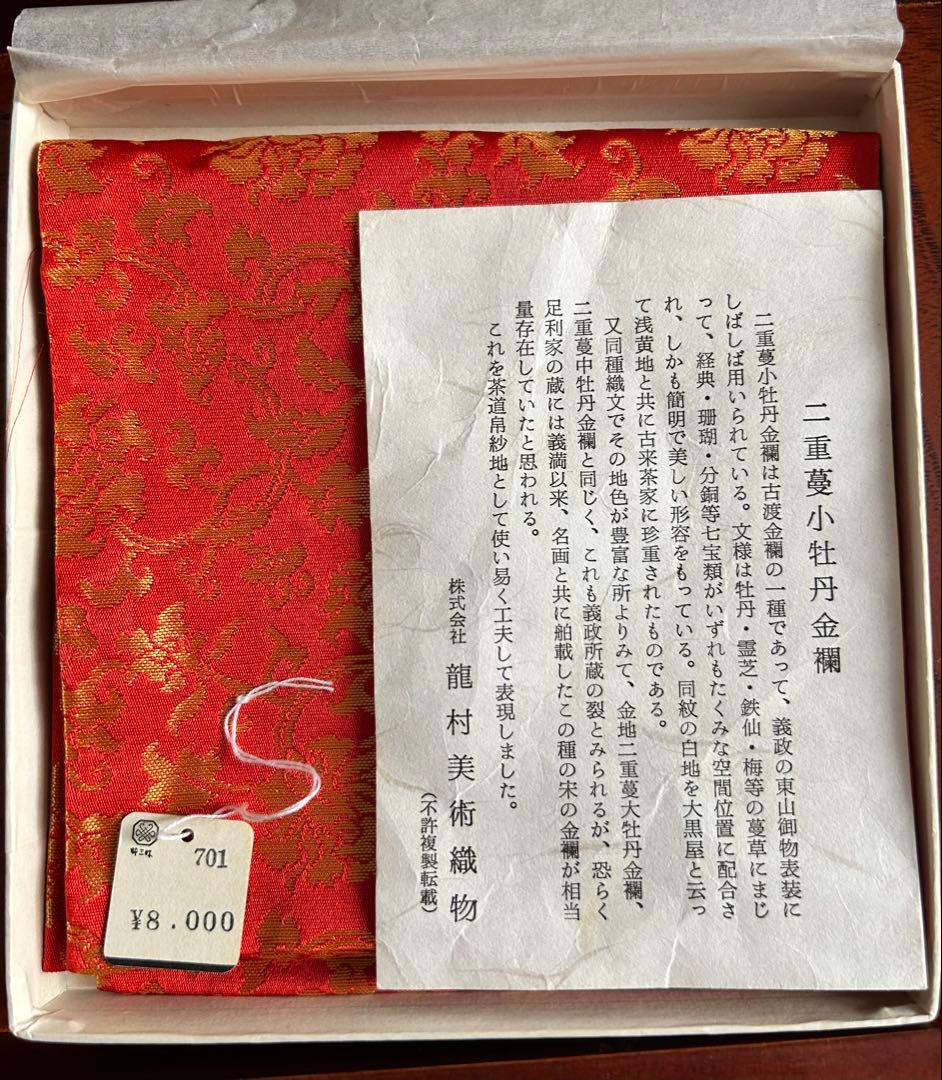 二重蔓小牡丹金襴
二重蔓小牡丹金襴は古渡金襴の一種であって、義政の東山御物表装に
しばしば用いられている。文様は牡丹・霊芝・鉄仙・梅等の蔓草にまじ
って、経典・珊瑚・分銅等七宝類がいずれもたくみな空間位置に配合さ
れ、しかも簡明で美しい形容をもっている。同紋の白地を大黒屋と云っ
て浅黄地と共に古来茶家に珍重されたものである。
又同種織文でその地色が豊富な所よりみて、金地二重蔓大牡丹金襴、
二重蔓中牡丹金襴と同じく、これも義政所蔵の裂とみられるが、恐らく
足利家の蔵には義満以来、名画と共に舶載したこの種の宋の金襴が相当
量存在していたと思われる。
これを茶道帛紗地として使い易く工夫して表現しました。
株式会社 龍村美術織物
(不許複製転載)
701
¥8.000